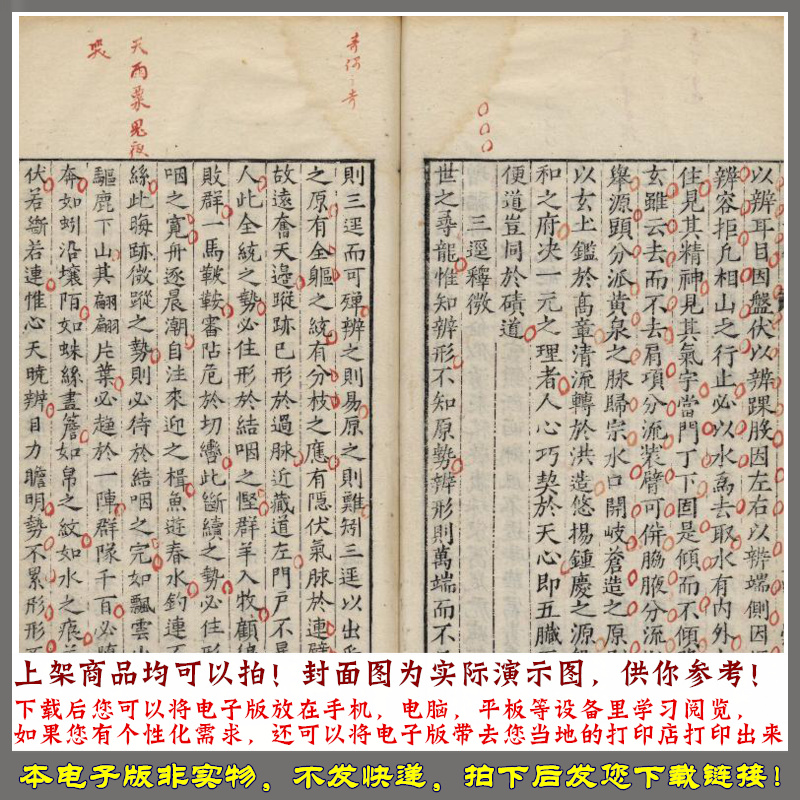 以辨耳目因盤伏以辨踝股因左右以辨端側因
辨容拒凢相山之行止必以水爲去取水有内外
住見其精神見其氣宇當門丁下固是傾而不傾
玄雖云去而不去肩項分流裝臂可併脇腋分流
舉源頭分派黄泉之脉歸宗水口開岐蒼造之原則
以玄上鑑於髙董清流轉於洪造悠揚鍾慶之源
和之府决一元之理者人心巧契於天心即五臓
便道豈同於磧道
三逕釋微
世之尋龍惟知辨形不知原勢辨形則萬端而不
奇偶之奇
天雨粟鬼夜
哭
則三逕而可殫辨之則易原之則難矧三逕以出
之原有全軀之紋有分枝之應有隱伏氣脉於連
故遠奮天邉蹤跡已形於過脉近藏道左門戸不
人此全統之勢必住形於結咽之慳群羊入牧顧
敗群一馬鞁鞍審阽危於切轡此斷續之勢必住形
咽之寛舟逐晨潮自注來迎之楫魚遊春水釣連
絲此晦跡微蹤之勢則必待於結咽之完如飄雲
驅鹿下山其翩翩片葉必趨於一陣群隊千百必
奔如蚓沿壤陌如蛛絲畫簷如帛之紋如水之痕
伏若斷若連惟心天曉辨目力瞻明勢不累形形
上架商品均可以拍！封面图为实际演示图，供你参考！
下载后您可以将电子版放在手机，电脑，平板等设备里学习阅览，
如果您有个性化需求，还可以将电子版带去您当地的打印店打印出来
本电子版非实物，不发快递，拍下后发您下载链接！